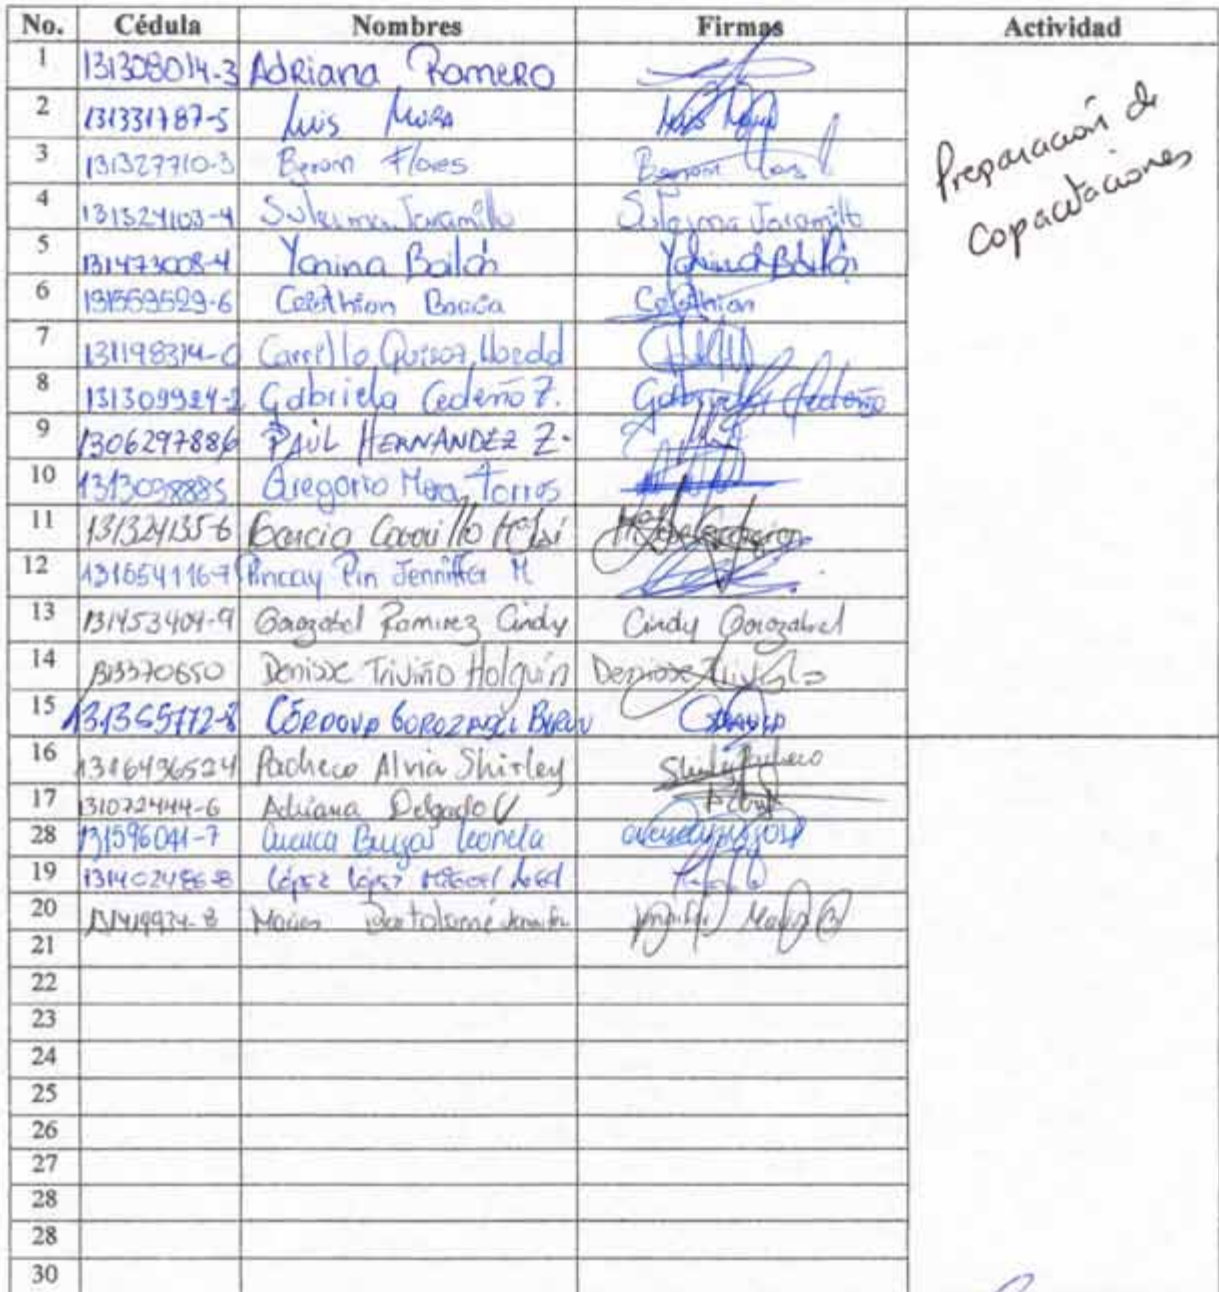 No. Cédula Nombres Firmas Actividad
1 131308014-3 Adriana Romero
Preparación de
2 131331787-5 Luis Mora Luis Mora
capacitaciones
3 131327710-3 Byron Flores Byron Flores
4 131324103-4 Suleima Jaramillo Suleima Jaramillo
5 131473008-4 Yanina Bailón Yanina Bailón
6 131559529-6 Celsthian
7 131198314-0 Carrillo
8 131309924-2 Gabriela Cedeño Z. Gabriela Cedeño
9 1306297886 PAÚL HERNÁNDEZ Z.
10 1313098885 Gregorio Mera Torres
11 131324135-6 García
12 131654116-7 Pincay Pin Jenniffer M
13 131453404-9 Gorozabel Ramirez Cindy Cindy Gorozabel
14 1313370650 Denisse Triviño Holguín Denisse Triviño
15 131365772-8 CÓRDOVA GOROZABEL BYRON
16 1316496524 Pacheco Alvia Shirley Shirley Pacheco
17 131072444-6 Adriana Delgado V
28 131596041-7 Leonela
19 131402486-8 López López Miguel
20 Bartolomé Jennifer Jennifer
21
22
23
24
25
26
27
28
28
30